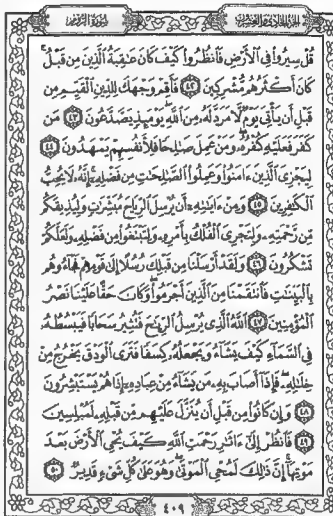 الجزء الحادي والعشرون
سورة الروم
قُلْ سِيرُوا فِي الْأَرْضِ فَانظُرُوا كَيْفَ كَانَ عَاقِبَةُ الَّذِينَ مِن قَبْلُ
كَانَ أَكْثَرُهُم مُّشْرِكِينَ ٤٢ فَأَقِمْ وَجْهَكَ لِلدِّينِ الْقَيِّمِ مِن
قَبْلِ أَن يَأْتِيَ يَوْمٌ لَّا مَرَدَّ لَهُ مِنَ اللَّهِ يَوْمَئِذٍ يَصَّدَّعُونَ ٤٣ مَن
كَفَرَ فَعَلَيْهِ كُفْرُهُ وَمَنْ عَمِلَ صَالِحًا فَلِأَنفُسِهِمْ يَمْهَدُونَ ٤٤
لِيَجْزِيَ الَّذِينَ ءَامَنُوا وَعَمِلُوا الصَّالِحَاتِ مِن فَضْلِهِ إِنَّهُ لَا يُحِبُّ
الْكَافِرِينَ ٤٥ وَمِنْ ءَايَاتِهِ أَن يُرْسِلَ الرِّيَاحَ مُبَشِّرَاتٍ وَلِيُذِيقَكُم
مِّن رَّحْمَتِهِ وَلِتَجْرِيَ الْفُلْكُ بِأَمْرِهِ وَلِتَبْتَغُوا مِن فَضْلِهِ وَلَعَلَّكُمْ
تَشْكُرُونَ ٤٦ وَلَقَدْ أَرْسَلْنَا مِن قَبْلِكَ رُسُلًا إِلَىٰ قَوْمِهِمْ فَجَاءُوهُم
بِالْبَيِّنَاتِ فَانتَقَمْنَا مِنَ الَّذِينَ أَجْرَمُوا وَكَانَ حَقًّا عَلَيْنَا نَصْرُ
الْمُؤْمِنِينَ ٤٧ اللَّهُ الَّذِي يُرْسِلُ الرِّيَاحَ فَتُثِيرُ سَحَابًا فَيَبْسُطُهُ
فِي السَّمَاءِ كَيْفَ يَشَاءُ وَيَجْعَلُهُ كِسَفًا فَتَرَى الْوَدْقَ يَخْرُجُ مِنْ
خِلَالِهِ فَإِذَا أَصَابَ بِهِ مَن يَشَاءُ مِنْ عِبَادِهِ إِذَا هُمْ يَسْتَبْشِرُونَ
٤٨ وَإِن كَانُوا مِن قَبْلِ أَن يُنَزَّلَ عَلَيْهِم مِّن قَبْلِهِ لَمُبْلِسِينَ
٤٩ فَانظُرْ إِلَىٰ ءَاثَارِ رَحْمَتِ اللَّهِ كَيْفَ يُحْيِي الْأَرْضَ بَعْدَ
مَوْتِهَا إِنَّ ذَٰلِكَ لَمُحْيِي الْمَوْتَىٰ وَهُوَ عَلَىٰ كُلِّ شَيْءٍ قَدِيرٌ ٥٠
٤٠٩